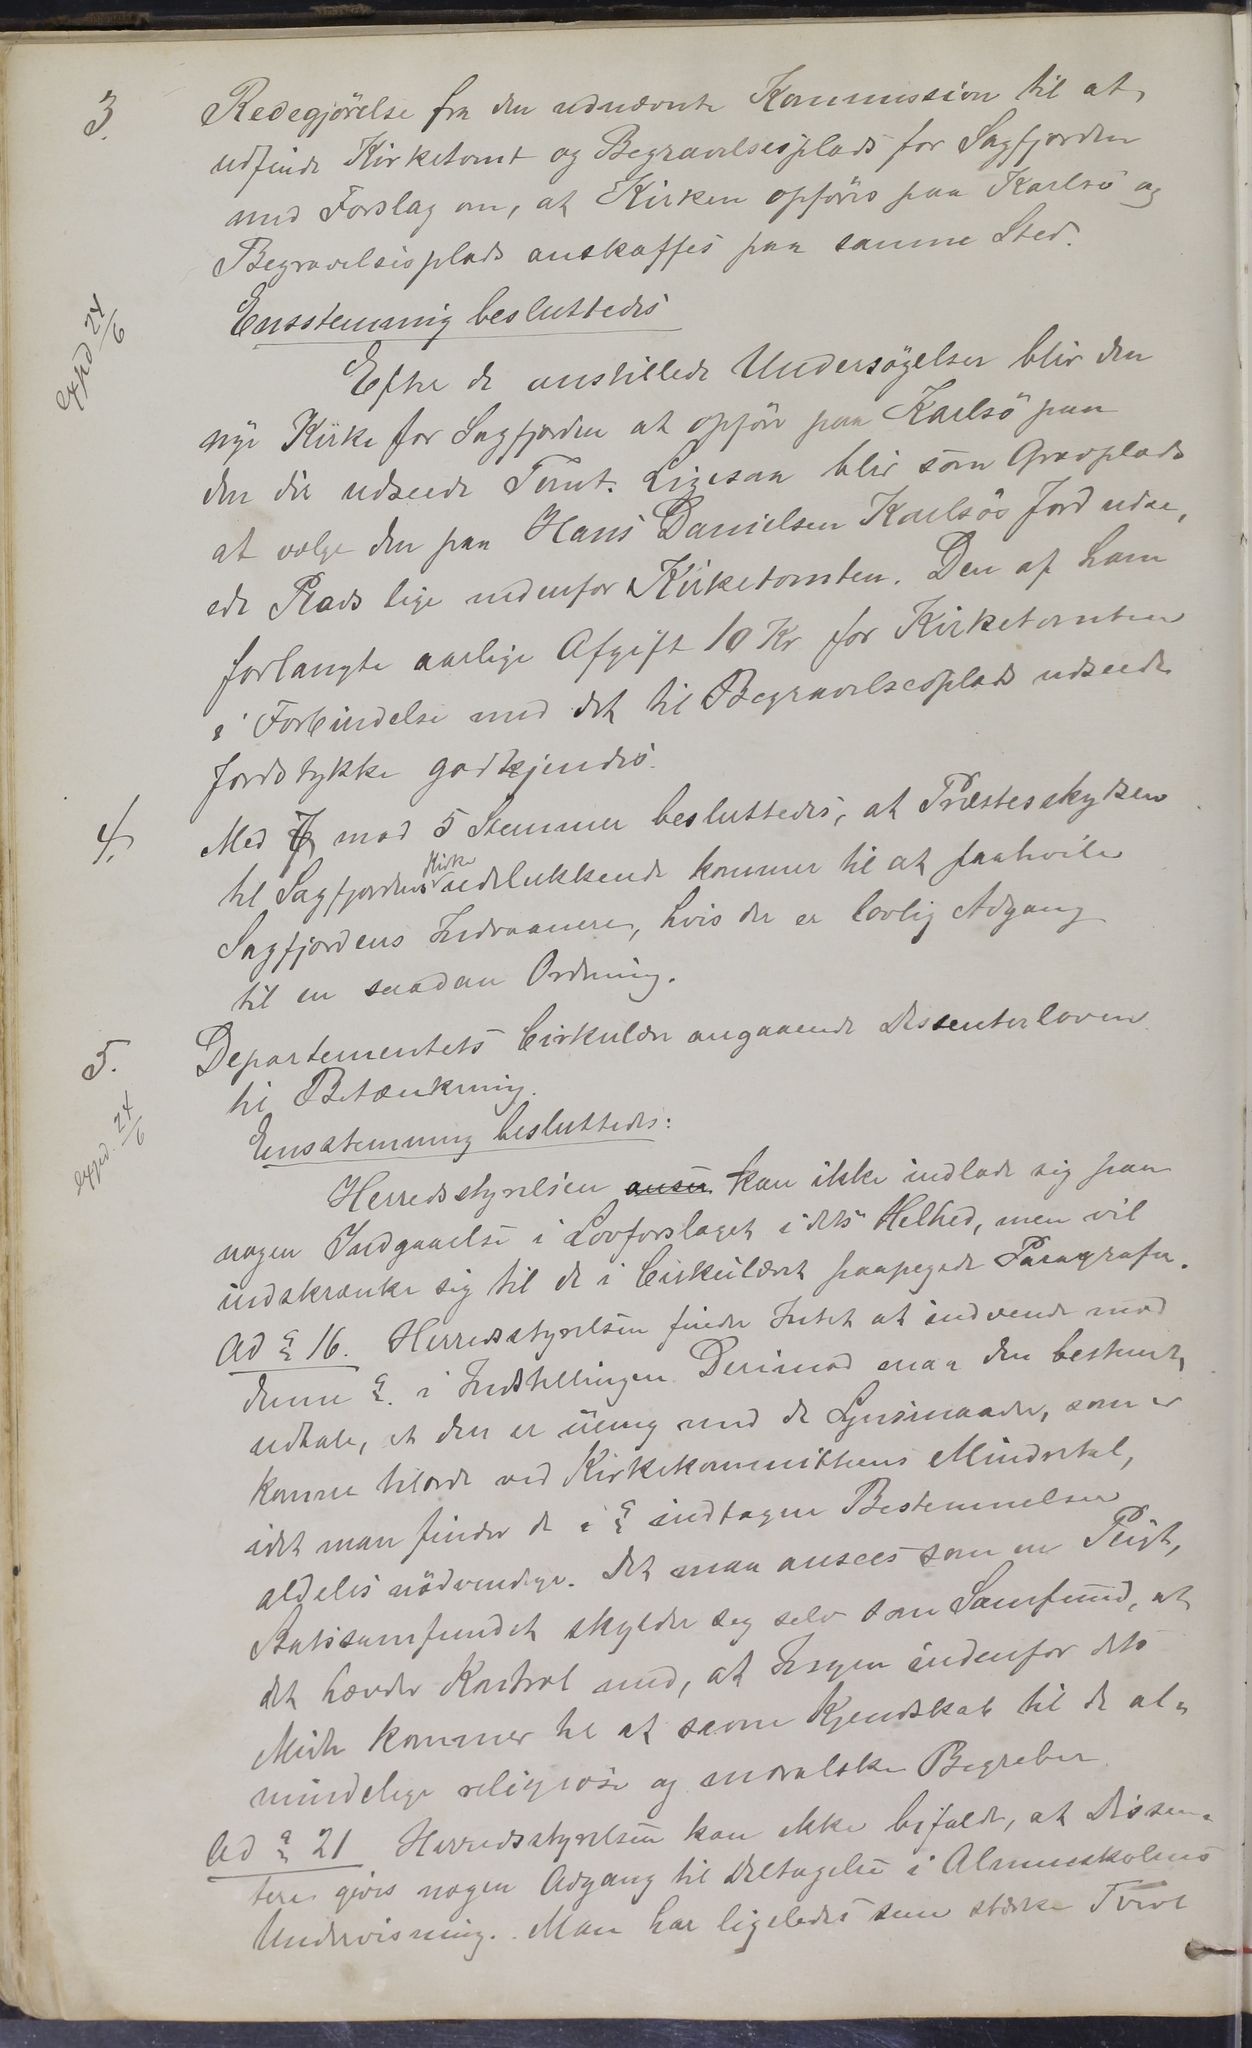 3. Redegjörelse fra den udnævnte Kommission til at
udfinde Kirketomt og Begravelsesplads for Sagfjorden
med Forslag om, at Kirken opföres paa Karlsö og
Begravelsesplads anskaffes paa samme Sted.
exped 24/6
Ensstemmig besluttedes
Efter de anstillede Undersögelser blir den
nye Kirke for Sagfjorden at opföre paa Karlsö paa
den der udseede Tomt. Ligesaa blir som Gravplads
at vælge den paa Hans Danielsen Karlsös Jord udse,
ede Plads lige nedenfor Kirketomten. Den af ham
forlangte aarlige Afgift 10 Kr for Kirketomten
i Forbindelse med det til Begravelsesplads udseede
Jordstykke godkjendes.
4. Med 7 mod 5 Stemmer besluttedes, at Præsteskydsen
til Sagfjordens Kirke udelukkende kommer til at paahvile
Sagfjordens Indvaanere, hvis der er lovlig Adgang
til en saadan Ordning.
5. Departementets Cirkulære angaaende Dissenterloven
til Betænkning.
exped. 24/6
Eensstemmig besluttedes:
Herredsstyrelsen anser kan ikke indlade sig paa
nogen Indgaaelse i Lovforslaget i dets Helhed, men vil
indskrænke sig til de i Cirkulæret paapegede Paragrafer.
Ad § 16. Herredsstyrelsen finder Intet at indvende mod
denne §. i Indstillingen. Derimod maa den bestemt,
udtale, at den er uenig med de Synsmaader, som er
komne tilorde ved Kirkekommitteens Mindretal,
idet man finder de i § indtagne Bestemmelser
aldeles nödvendige. Det maa ansees som en Pligt,
Statssamfundet skylder sig selv som Samfund, at
det hævder Kontrol med, at Ingen indenfor dets
Midte kommer til at savne Kjendskab til de al-
mindelige religiöse og moralske Begreber.
Ad § 21 Herredsstyrelsen kan ikke bifalde, at Dissen-
tere gives nogen Adgang til Deltagelse i Almueskolens
Undervisning. Man har ligeledes sine stærke Tvivl